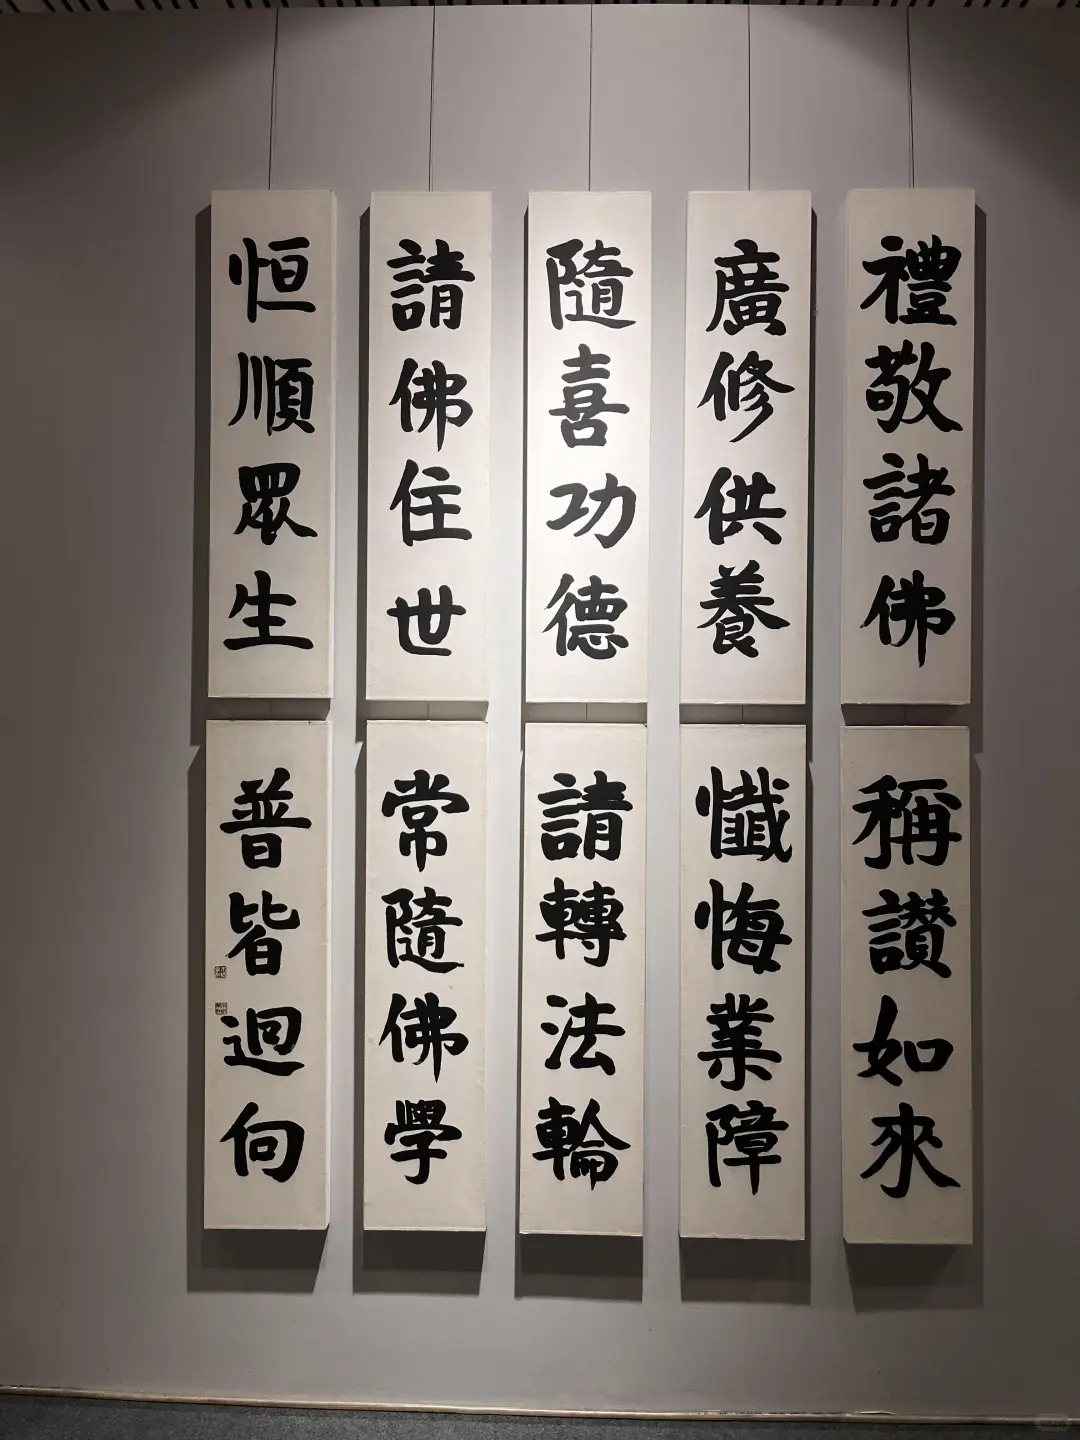 禮敬諸佛
稱讃如來
廣修供養
懺悔業障
隨喜功德
請轉法輪
請佛住世
常隨佛學
恒順眾生
普皆迴向